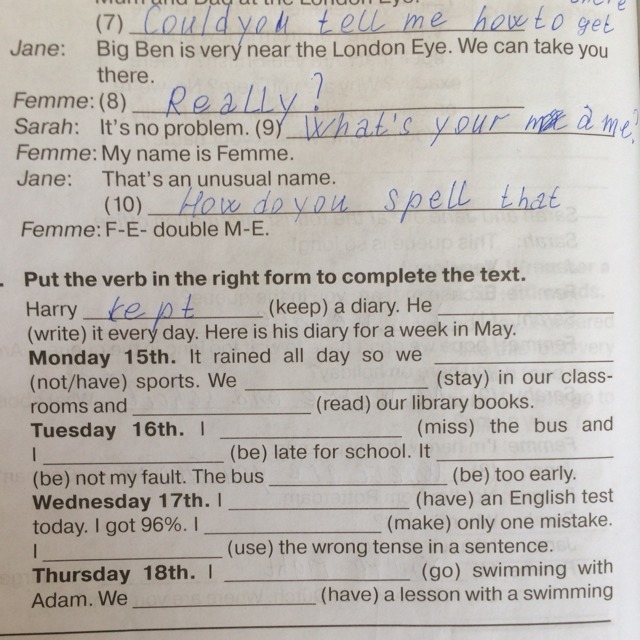 (7) Could you tell me how to get
Jane: Big Ben is very near the London Eye. We can take you
there.
Femme: (8) Really?
Sarah: It's no problem. (9) What's your name?
Femme: My name is Femme.
Jane: That's an unusual name.
(10) How do you spell that
Femme: F-E- double M-E.
Put the verb in the right form to complete the text.
Harry kept (keep) a diary. He ____
(write) it every day. Here is his diary for a week in May.
Monday 15th. It rained all day so we ____
(not/have) sports. We ____ (stay) in our class-
rooms and ____ (read) our library books.
Tuesday 16th. I ____ (miss) the bus and
I ____ (be) late for school. It ____
(be) not my fault. The bus ____ (be) too early.
Wednesday 17th. I ____ (have) an English test
today. I got 96%. I ____ (make) only one mistake.
I ____ (use) the wrong tense in a sentence.
Thursday 18th. I ____ (go) swimming with
Adam. We ____ (have) a lesson with a swimming